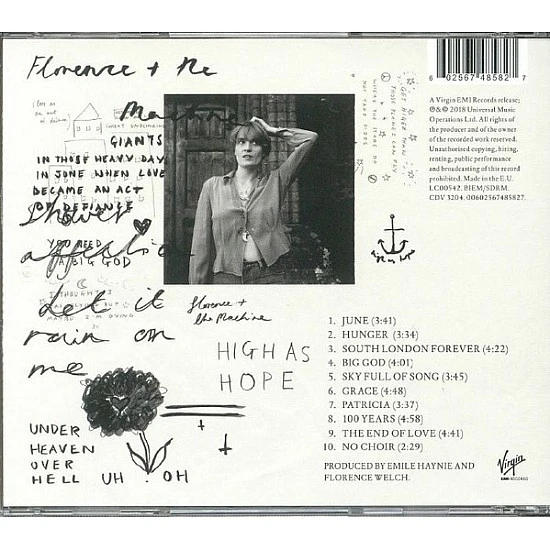 Florence + the
Machine
GIANTS
IN THOSE HEAVY DAYS
IN JUNE WHEN LOVE
BECAME AN ACT
OF DEFIANCE
Shower
affection
YOU NEED
A BIG GOD
Let it
rain on
me
florence +
the Machine
HIGH AS
HOPE
UNDER
HEAVEN
OVER
HELL UH OH
6 02567 48582 7
A Virgin EMI Records release;
℗&© 2018 Universal Music
Operations Ltd. All rights of
the producer and of the owner
of the recorded work reserved.
Unauthorised copying, hiring,
renting, public performance
and broadcasting of this record
prohibited. Made in the E.U.
LC00542. BIEM/SDRM.
CDV 3204. 00602567485827.
1. JUNE (3:41)
2. HUNGER (3:34)
3. SOUTH LONDON FOREVER (4:22)
4. BIG GOD (4:01)
5. SKY FULL OF SONG (3:45)
6. GRACE (4:48)
7. PATRICIA (3:37)
8. 100 YEARS (4:58)
9. THE END OF LOVE (4:41)
10. NO CHOIR (2:29)
PRODUCED BY EMILE HAYNIE AND
FLORENCE WELCH.
Virgin
EMI RECORDS